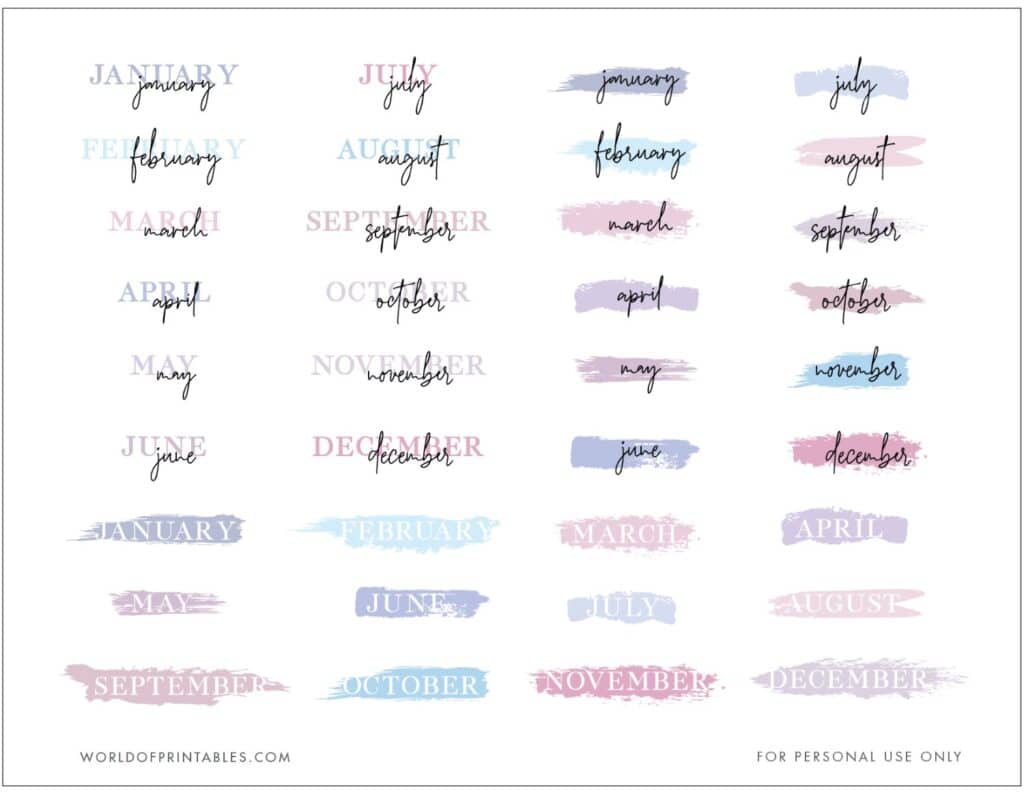 JANUARY january JULY july january july
FEBRUARY february AUGUST august february august
MARCH march SEPTEMBER september march september
APRIL april OCTOBER october april october
MAY may NOVEMBER november may november
JUNE june DECEMBER december june december
JANUARY FEBRUARY MARCH APRIL
MAY JUNE JULY AUGUST
SEPTEMBER OCTOBER NOVEMBER DECEMBER
WORLDOFPRINTABLES.COM FOR PERSONAL USE ONLY